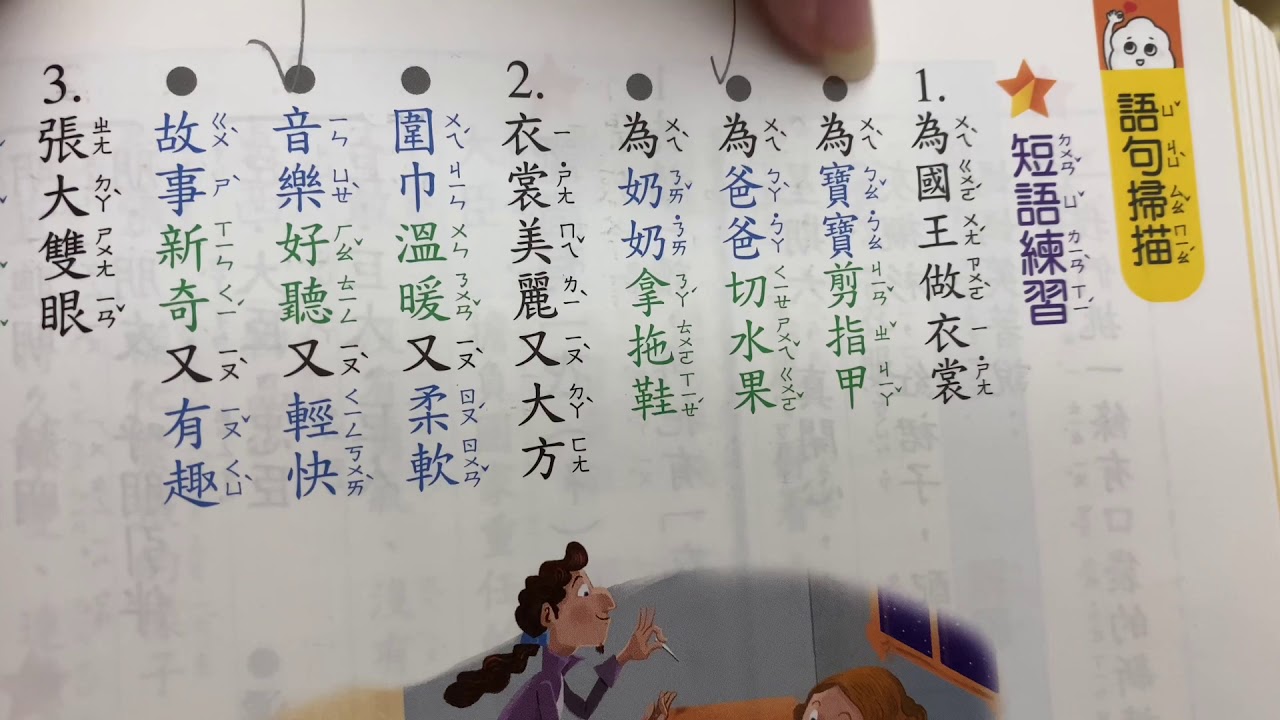 語句掃描
短語練習
1.
為國王做衣裳
為寶寶剪指甲
為爸爸切水果
為奶奶拿拖鞋
2.
衣裳美麗又大方
圍巾溫暖又柔軟
音樂好聽又輕快
故事新奇又有趣
3.
張大雙眼